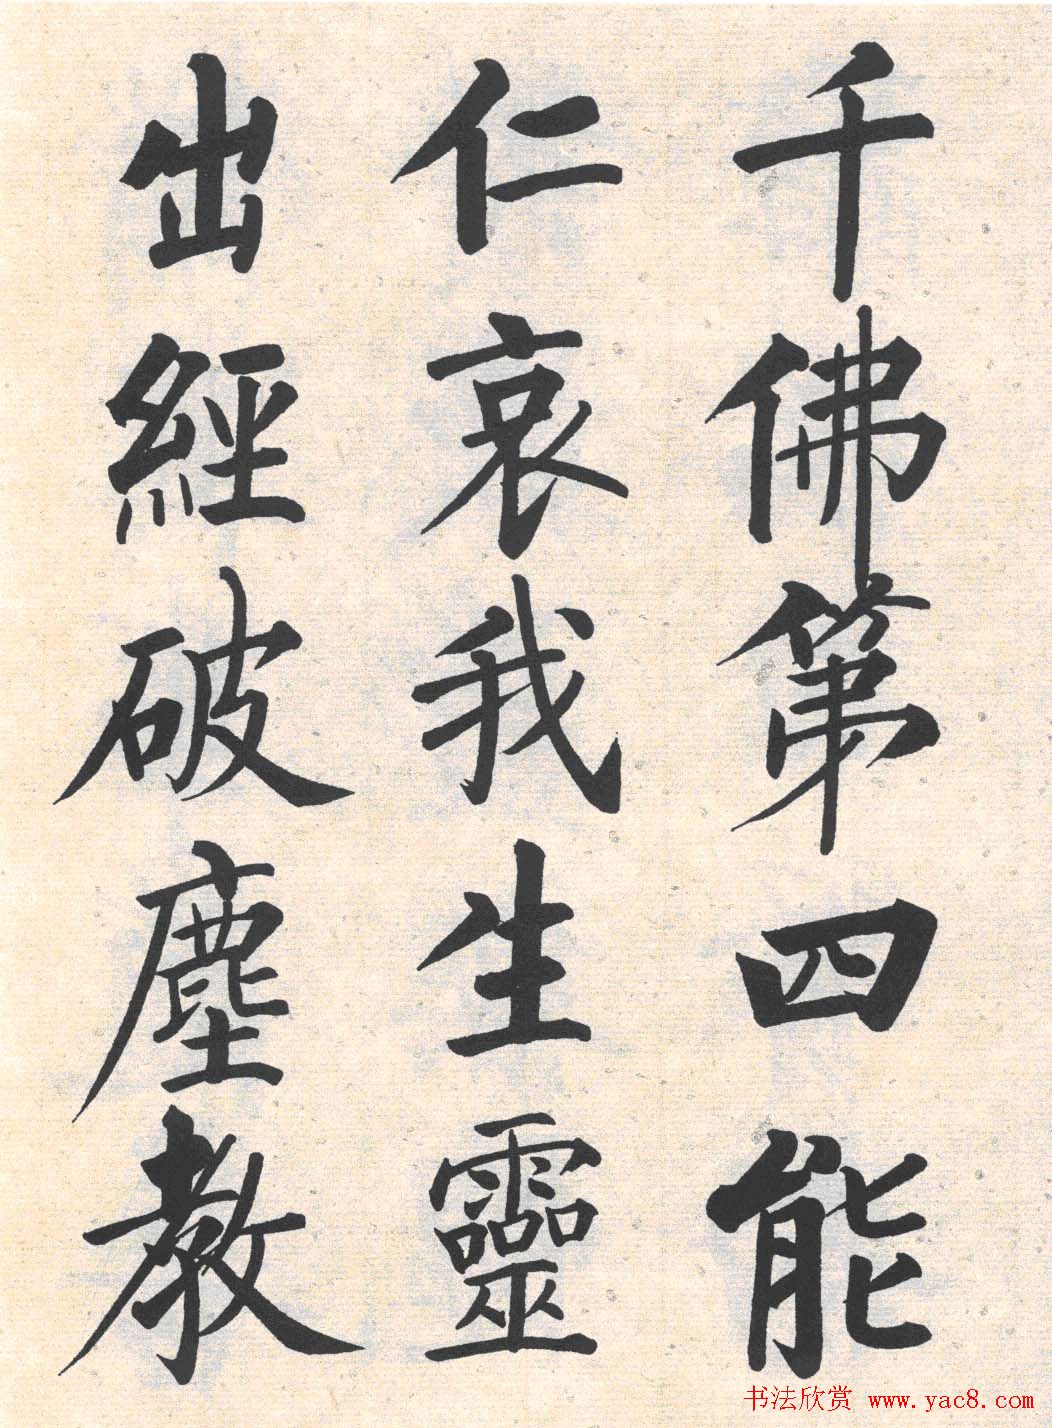 千佛第四能
仁哀我生靈
出經破塵教
书法欣赏 www.yac8.com